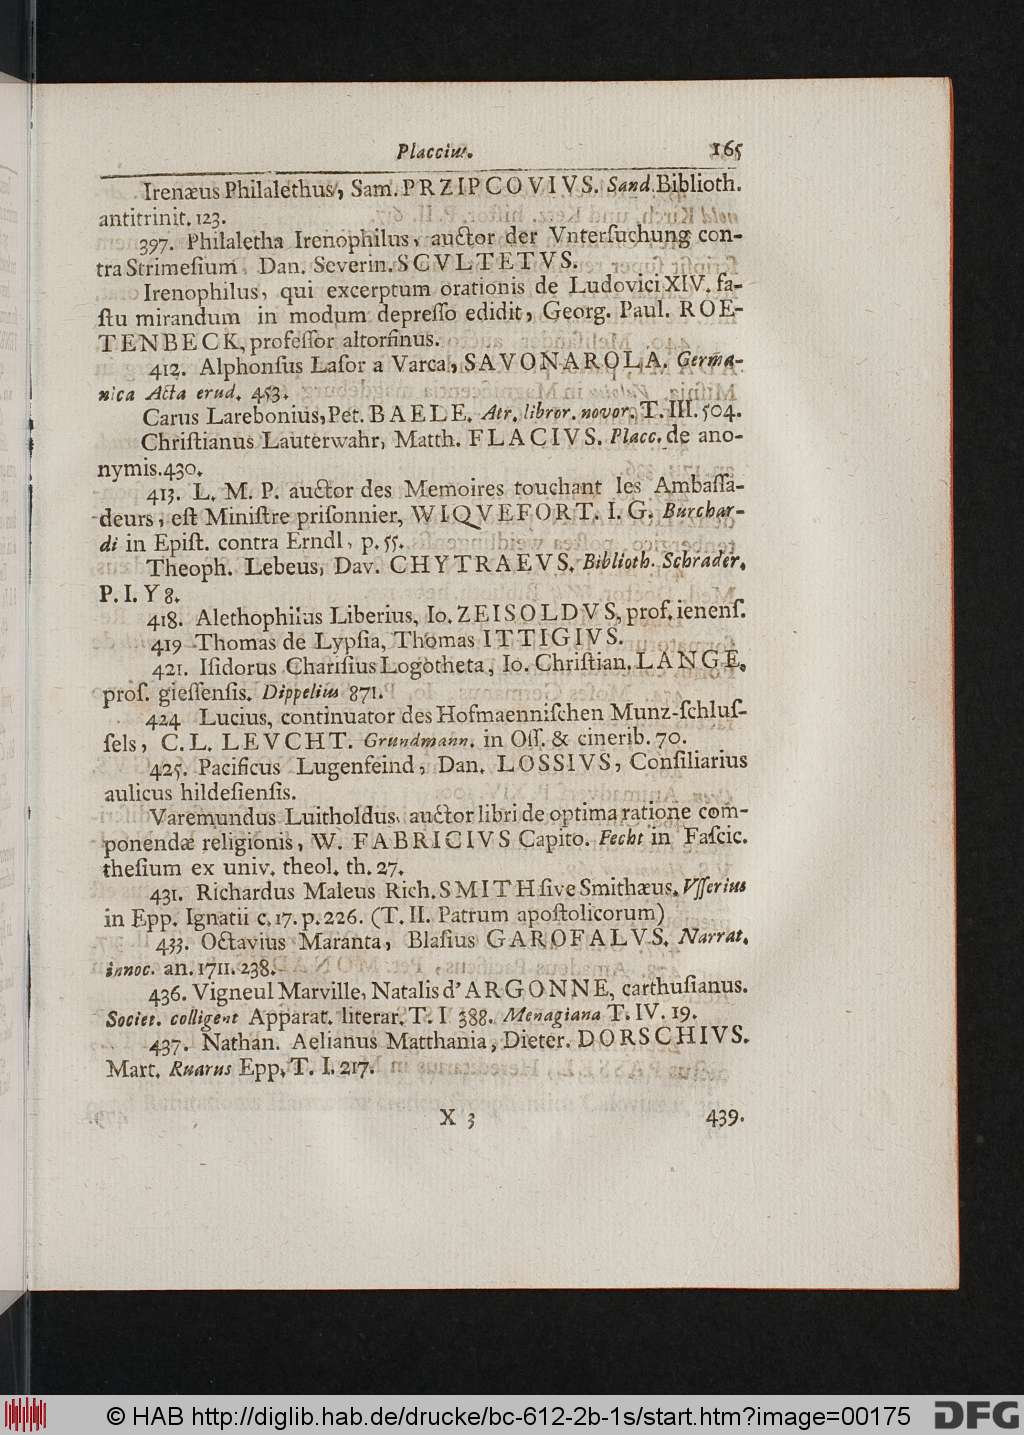 Placcius. 165
Irenæus Philalethus, Sam. PRZIPCOVIVS. Sand. Biblioth.
antitrinit. 123.
397. Philaletha Irenophilus, auctor der Vnterſuchung con-
tra Strimeſium. Dan. Severin. SCVLTETVS.
Irenophilus, qui excerptum orationis de Ludovici XIV. fa-
ſtu mirandum in modum depreſſo edidit, Georg. Paul. ROE-
TENBECK, profeſſor altorfinus.
412. Alphonſus Laſor a Varea, SAVONAROLA. Germa-
nica Acta erud. 453.
Carus Larebonius, Pet. BAELE. Atr. libror. novor. T. III. 504.
Chriſtianus Lauterwahr, Matth. FLACIVS. Placc. de ano-
nymis. 430.
413. L. M. P. auctor des Memoires touchant les Ambaſſa-
deurs, eſt Miniſtre priſonnier, WIQVEFORT. I. G. Burchar-
di in Epiſt. contra Erndl, p. 55.
Theoph. Lebeus, Dav. CHYTRAEVS. Biblioth. Schrader.
P. I. Y 8.
418. Alethophilus Liberius, Io. ZEISOLDVS, prof. ienenſ.
419 Thomas de Lypſia, Thomas ITTIGIVS.
421. Iſidorus Chariſius Logotheta, Io. Chriſtian. LANGE,
prof. gieſſenſis. Dippelius 871.
424 Lucius, continuator des Hofmaenniſchen Munz-ſchluſ-
ſels, C. L. LEVCHT. Grundmann. in Oſſ. & cinerib. 70.
425. Pacificus Lugenfeind, Dan. LOSSIVS, Conſiliarius
aulicus hildeſienſis.
Varemundus Luitholdus, auctor libri de optima ratione com-
ponendæ religionis, W. FABRICIVS Capito. Fecht in Faſcic.
theſium ex univ. theol. th. 27.
431. Richardus Maleus Rich. SMITH ſive Smithæus. Vſſerius
in Epp. Ignatii c. 17. p. 226. (T. II. Patrum apoſtolicorum)
433. Octavius Maranta, Blaſius GAROFALVS. Narrat.
innoc. an. 1711. 238.
436. Vigneul Marville, Natalis d'ARGONNE, carthuſianus.
Societ. colligent Apparat. literar. T. I 388. Menagiana T. IV. 19.
437. Nathan. Aelianus Matthania, Dieter. DORSCHIVS.
Mart. Ruarus Epp. T. I. 217.
X 3 439.
© HAB http://diglib.hab.de/drucke/bc-612-2b-1s/start.htm?image=00175 DFG